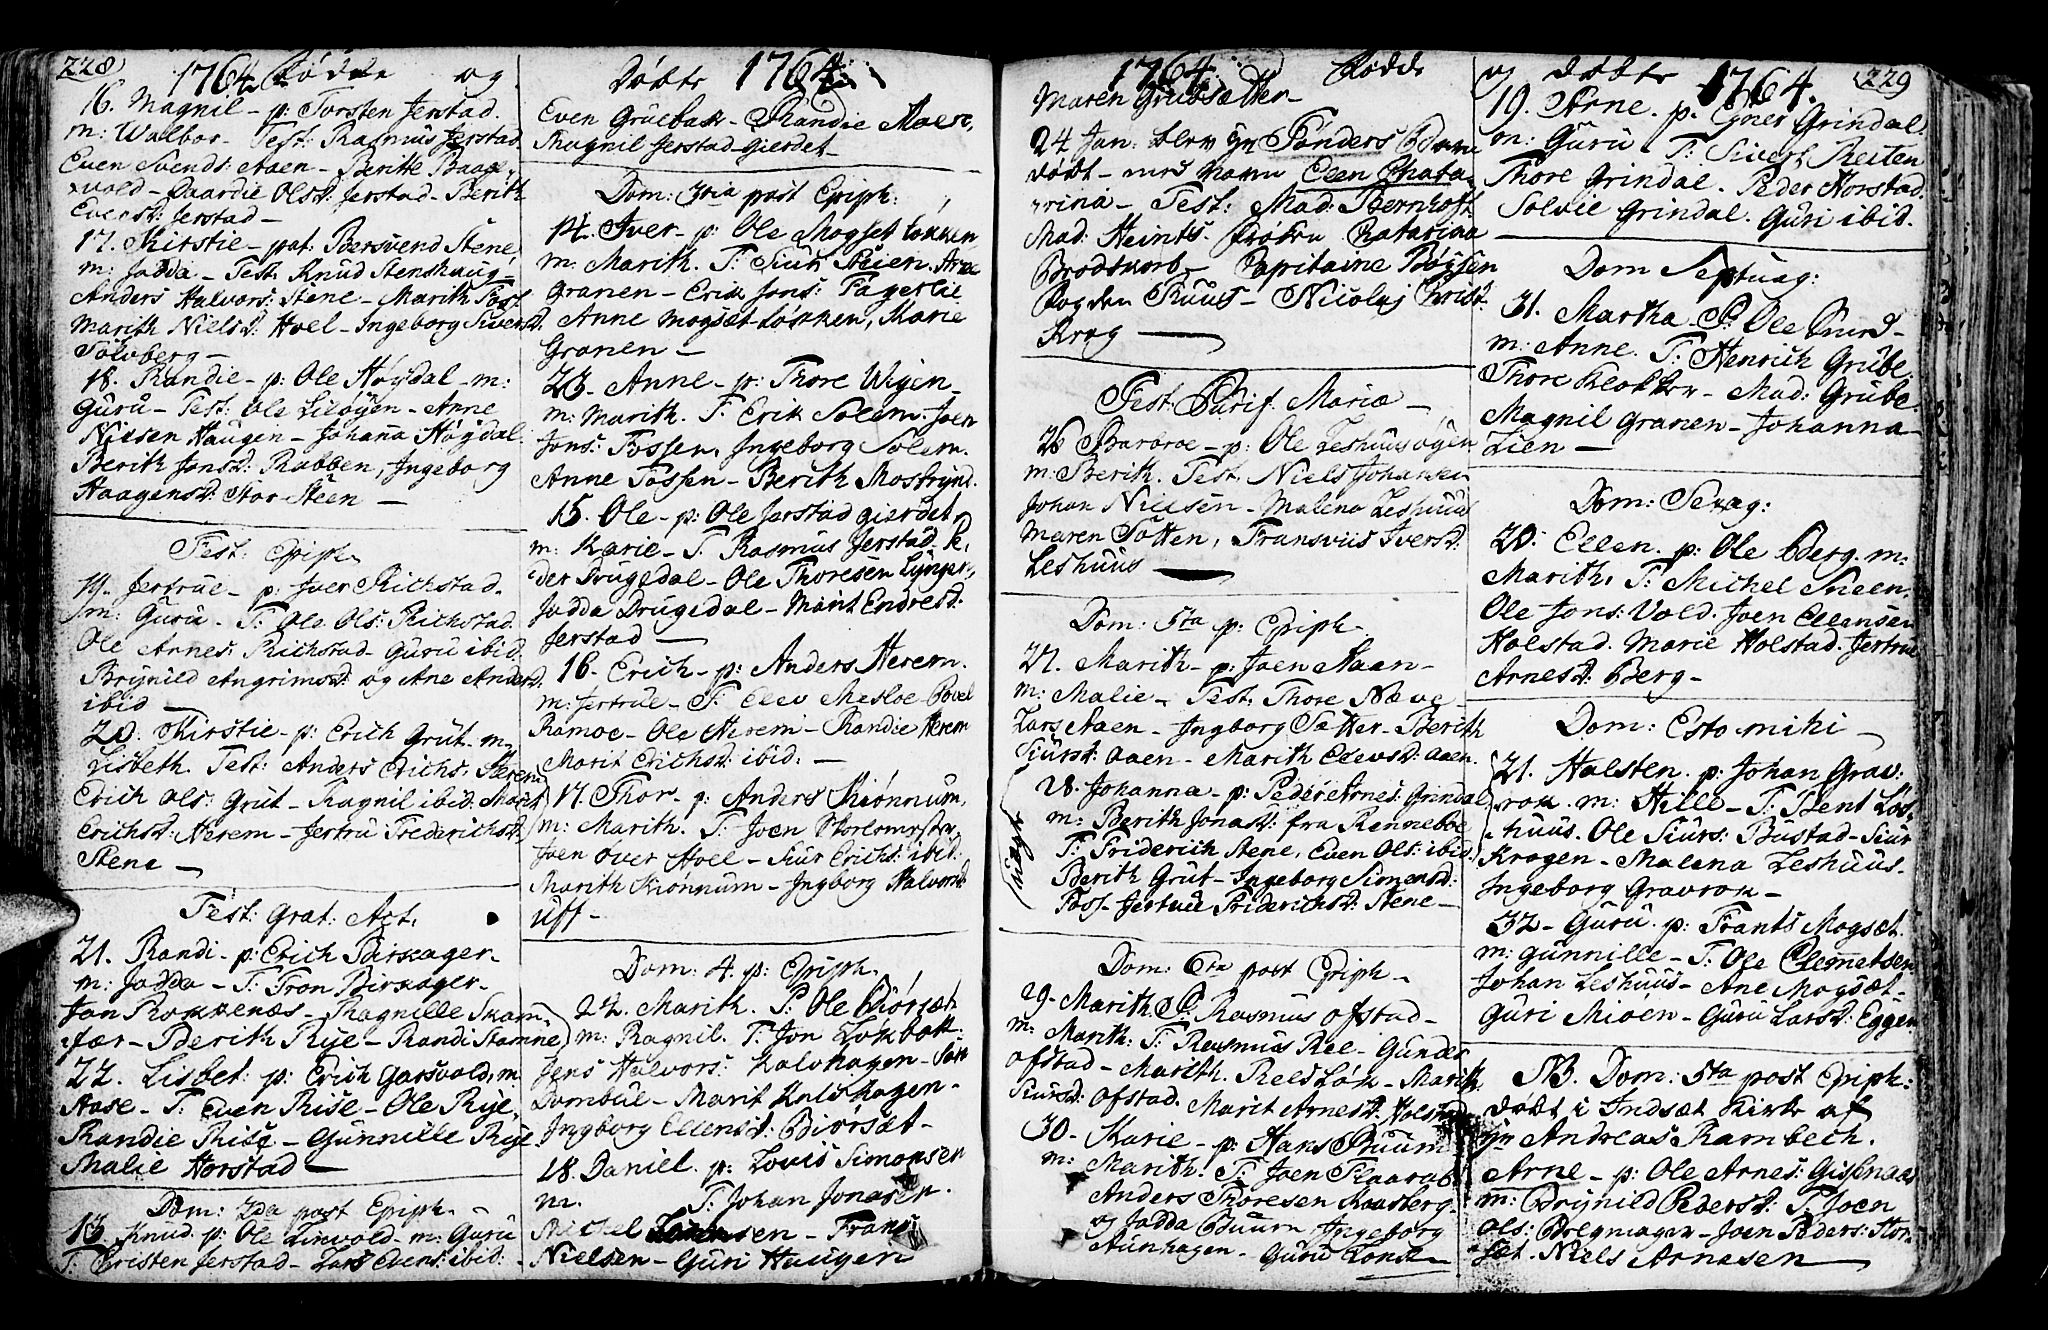 228
1764 Fødde og
16. Magnil - p: Torsten Jerstad.
m: Walbor - Test: Rasmus Jerstad
Even Svends: Aaen - Beritte Baage
vold - Paardie Olsd: Jerstad - Berith
Evensd: Jerstad -
17. Kirstie - pat: Bersvend Stene
m: Jadda - Test: Knud Stenshaug -
Anders Halvors: Stene - Marith Foss
Marith Nielsd: Hoel - Ingeborg Siversd.
Solvberg -
18. Randie - p: Ole Høgdal - m:
Guru - Test: Ole Liløyen - Anne
Nielsen Haugen - Johana Høgdal
Berith Jonsd: Rabben, Ingeborg
Haagensd: Stor Steen -
Fest: Epiph.
19. Jertrue - p: Iver Richstad.
m: Guru - T: Ole Ols: Richstad
Ole Arnes: Richstad - Guru ibid.
Brynild Angrimsd: og Ane Andersd:
ibid -
20. Kirstie - p: Erich Grut - m:
Lisbeth. Test: Anders Erichs: Herem
Erich Ols: Grut - Ragnil ibid: Marit
Erichsd: Herem - Jertru Frederichsd:
Stene -
Fest: Grat: Act.
21. Randi - p: Erich Birkager -
m: Jadda - T: Tron Birkager -
Jon Rokkenæs - Ragnille Skam
fær - Berith Rye - Randi Stamne
22. Lisbet: p: Erich Garsvold, m
Aase - T: Even Rise - Ole Rye,
Randie Rise - Gunnille Rye
Malie Horstad -
Dom: 2da post Epiph.
13 Knud. p: Ole Linvold - m: Guru
T: Christen Jerstad - Lars Evens: ibid:
Døbte 1764
Even Gruebak - Randie Moen,
Magnil Jerstad gierdet -
Dom: 3tia post Epiph:
14. Iver - p: Ole Mogset løkken
m: Marith. T: Siur Steien. Arne
Granen - Erik Jons: Fagerlie
Anne Mogset Løkken, Marie
Granen -
23. Anne - p: Thore Wigen -
m: Marith. T: Erik Solem. Joen
Jons: Fossen, Ingeborg Solem.
Anne Fossen - Berith Mosbrynd.
15. Ole - p: Ole Jerstad gierdet
m: Karie - T: Rasmus Jerstad. Pe,
der Drugedal - Ole Thoresen Lynger,
Jadda Drugedal - Marit Endresd:
Jerstad -
16. Erich - p: Anders Herem.
m: Jertrue - T: Elev Mesloe Povel
Ramoe - Ole Herem - Randie Herem
Marit Erichsd: ibid: -
17. Thor - p: Anders Kiønnum,
m: Marith. T: Joen Skolemester
Joen over Hoel - Siur Erichs: ibid:
Marith Kiønnum - Ingborg Halvorsd
Uff -
Dom: 4. p: Epiph.
24. Marith. P: Ole Biørset
m: Ragnil. T: Jon Lokbak -
Jens Halvors: Kalvhagen -
Dombue - Marit Kalvhagen -
Ingborg Ellensd: Biørsæt -
18. Daniel. p: Lovis Simonsen
m. T: Johan Jonasen.
Nielsen - Guri Haugen
1764 Fødde
Maren Grubsætter -
24 Jan: blev Hr Tønders Barn
døbt - med Navn Elen Chata-
rina - Test: Mad: Bernhoft
Mad: Heints. Frøken Chatarina
Brodtkorb - Capitaine Bøysen
Fogden Ruus - Nicolaj Christ.
Krog -
Fest: Purif. Mariæ -
26 Barbroe - p: Ole Leshuusøyen
m: Berith. Test. Niels Johansen
Johan Nielsen - Malena Leshuus
Maren Totten, Fransviis Iversd:
Leshuus -
Dom: 5ta p: Epiph.
27. Marith - p: Joen Aaen -
m: Malie - Test: Thore Næve -
Lars Aaen - Ingborg Sætter - Berith
Siursd: Aaen - Marith Elevsd: Aaen.
28. Johanna - p: Peder Arnes: Grindal
m: Berith Jonasd: fra Renneboe
T: Friderich Stene, Even Ols: ibid:
Berith Grut - Ingeborg Simensd:
Foss - Jertrue Friderichsd: Stene -
Uægte
Dom: 6ta post Epiph -
29. Marith P: Rasmus Ofstad -
m: Marith: T: Rasmus Ree - Gunder
Ofstad - Marith. Reesløk - Marith
Siursd: Ofstad. Marit Arnesd: Holstad
30. Karie - p: Hans Buum
m: Marith. T: Joen Flaarabt
Anders Thoresen Kaasberg -
og Jadda Buum, Ingeborg
Aunhagen - Guru Lonse -
og Døbte 1764. 229
19. Arne. p: Egnes Grindal.
m: Guru - T: Sivert Reiten
Thore Grindal. Peder Horstad
Solvie Grindal. Guri ibid.
Dom Septuag:
31. Martha - P: Ole
m: Anne. T: Henrich Grube
Thore Klokker - Mad: Grube.
Magnil Granen - Johanna
Lien -
Dom: Sexag:
20. Ellen. p: Ole Berg. m:
Marith. T: Michel Sneen.
Ole Jons: Vold. Joen Ellensen
Holstad. Marie Holstad. Jertrue
Arnesd: Berg -
Dom: Esto mihi -
21. Halsten. p: Johan Grav:
rok. m: Hille - T: Bent Les
huus. Ole Siurs: Bustad - Siur
Kragen - Malena Leshuus.
Ingeborg Gravrok -
32 - Guru. p: Frants Mogsæt.
m: Gunnille - T: Ole Clemetsen
Johan Leshuus - Ane Mogsæt -
Guri Mioen - Guru Larsd: Eggen
NB. Dom: 5ta post Epiph:
Døbt i Indsæt Kirke af
Hr Andreas Rambech.
Arne - p: Ole Arnes: Gisinaas
m: Brynild Pedersd: T: Joen
Ols: Bregmager - Joen Peders: Stor
sæt. Niels Arnesen -